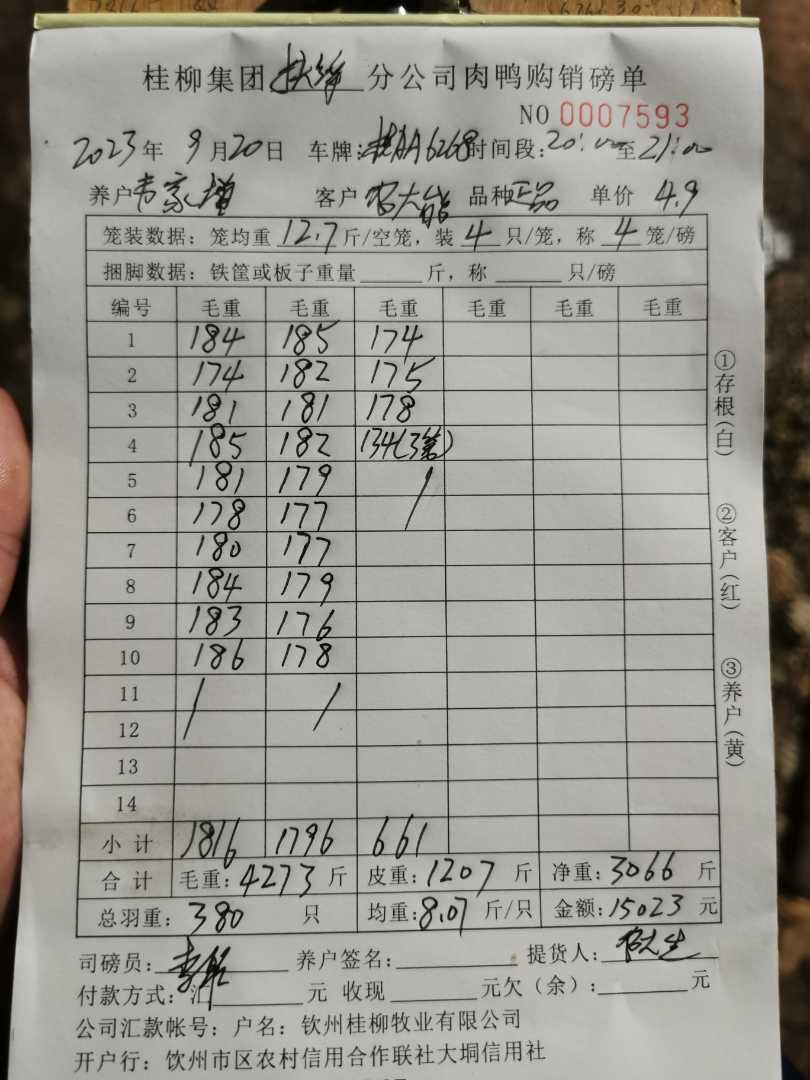 桂柳集团 分公司肉鸭购销磅单
NO 0007593
2023年 9月20日 车牌:桂AA6268 时间段:20:00至21:00
养户 韦家增 客户 品种 正品 单价 4.9
笼装数据：笼均重 12.7 斤/空笼，装 4 只/笼，称 4 笼/磅
捆脚数据：铁筐或板子重量 斤，称 只/磅
编号 毛重 毛重 毛重 毛重 毛重 毛重
1 184 185 174
2 174 182 175
3 181 181 178
4 185 182 134(3笼)
5 181 179 /
6 178 177
7 180 177
8 184 179
9 183 176
10 186 178
11 / /
12
13
14
小计 1816 1796 661
合计 毛重:4273斤 皮重:1207斤 净重:3066斤
总羽重：380 只 均重:8.07斤/只 金额:15023元
司磅员: 养户签名: 提货人:
付款方式：汇 元 收现 元欠（余）: 元
公司汇款帐号：户名：钦州桂柳牧业有限公司
开户行：钦州市区农村信用合作联社大垌信用社
①存根(白)
②客户(红)
③养户(黄)